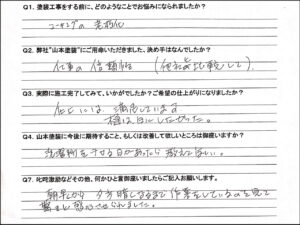 Q1. 塗装工事をする前に、どのようなことでお悩みになられましたか?
コーキングの老朽化
Q2. 弊社"山本塗装"にご用命いただきました、決め手はなんでしたか?
仕事の信頼性(他社と比較して)
Q3. 実際に施工完了してみて、いかがでしたか?ご希望の仕上がりになりましたか?
仕上には、満足しています
Q4. 山本塗装に今後に期待すること、もしくは改善して欲しいところは御座いますか?
洗濯物を干せる日があったら教えてほしい。
Q7. 叱咤激励などその他、何かひと言御座いましたらご記入お願いします。
朝早くから夕方暗くなるまで作業をしているのを見て
感心させられました。